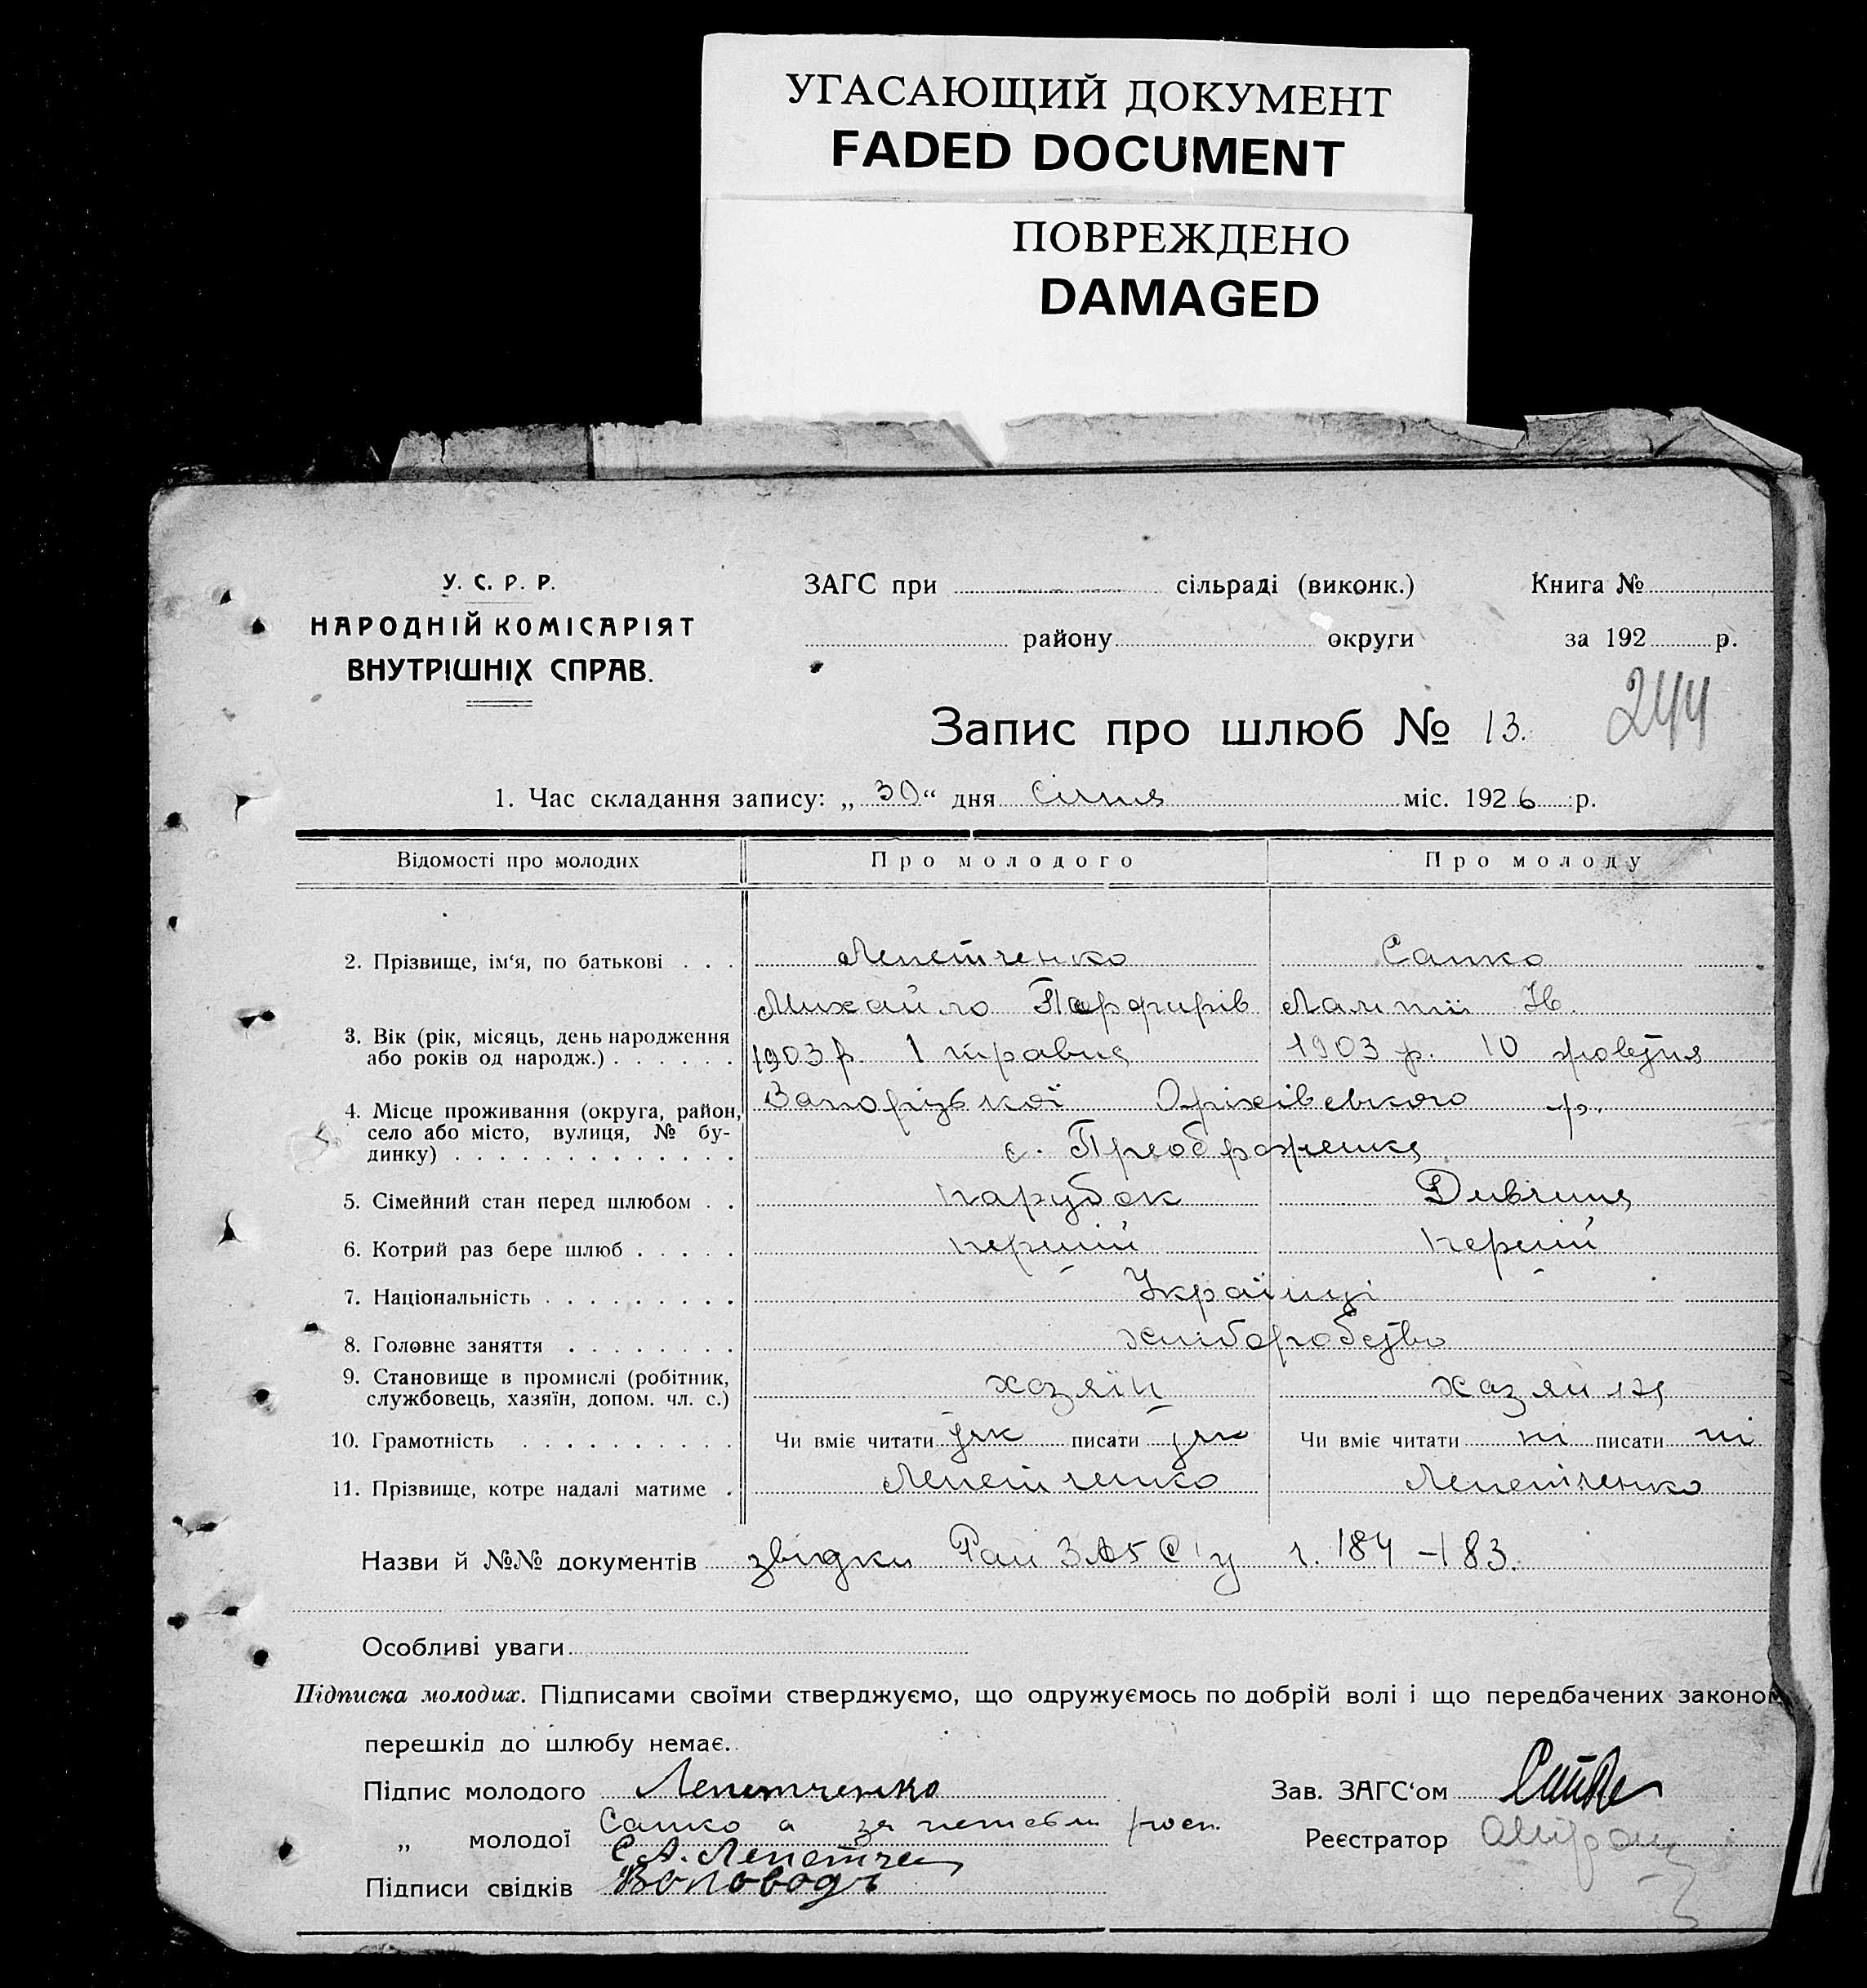 УГАСАЮЩИЙ ДОКУМЕНТ
FADED DOCUMENT
ПОВРЕЖДЕНО
DAMAGED
У. С. Р. Р.
НАРОДНІЙ КОМІСАРІЯТ
ВНУТРІШНІХ СПРАВ.
ЗАГС при сільраді (виконк.) Книга №
району округи за 192 р.
Запис про шлюб № 13. 244
1. Час складання запису: „ 30 “ дня січня міс. 1926 р.
Відомості про молодих Про молодого Про молоду
2. Прізвище, ім‘я, по батькові . . . Лепетченко Сапко
Михайло Парфирів
3. Вік (рік, місяць, день народження
або років од народж.) . . . . . . 1903 р. 1 травня 1903 р. 10 жовтня
4. Місце проживання (округа, район,
село або місто, вулиця, № бу-
динку) . . . . . . . . . . . . . Запорізької Оріхівського р.
с. Преображенка
5. Сімейний стан перед шлюбом . . парубок Дивчина
6. Котрий раз бере шлюб . . . . . перший перший
7. Національність . . . . . . . . . Українці
8. Головне заняття . . . . . . . . хліборобство
9. Становище в промислі (робітник,
службовець, хазяїн, допом. чл. с.) хазяїн хазяйка
10. Грамотність . . . . . . . . . . Чи вміє читати так писати так Чи вміє читати ні писати ні
11. Прізвище, котре надалі матиме . Лепетченко Лепетченко
Назви й №№ документів звідки Рай ЗАГС'у 184 – 183.
Особливі уваги
Підписка молодих. Підписами своїми стверджуємо, що одружуємось по добрій волі і що передбачених законом
перешкід до шлюбу немає.
Підпис молодого Лепетченко Зав. ЗАГС‘ом
„ молодої Сапко а за неписьм. росп. Реєстратор
С. А. Лепетчен
Підписи свідків Воловодъ